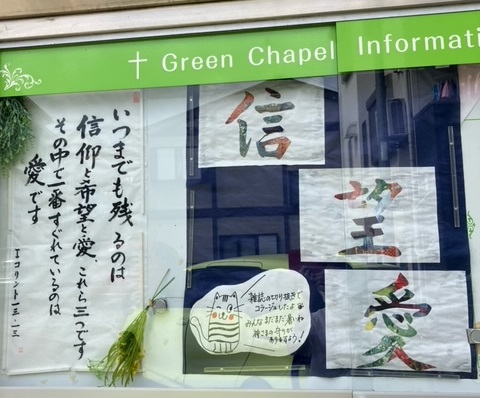 † Green Chapel Informati
いつまでも残るのは
信仰と希望と愛、これら三つです
その中で一番すぐれているのは
愛です
Iコリント一三・一三
信
望
愛
雑誌の切り抜きで
コラージュしたよ
みんなまだまだ暑いね
神さまの守りが
ありますよう!